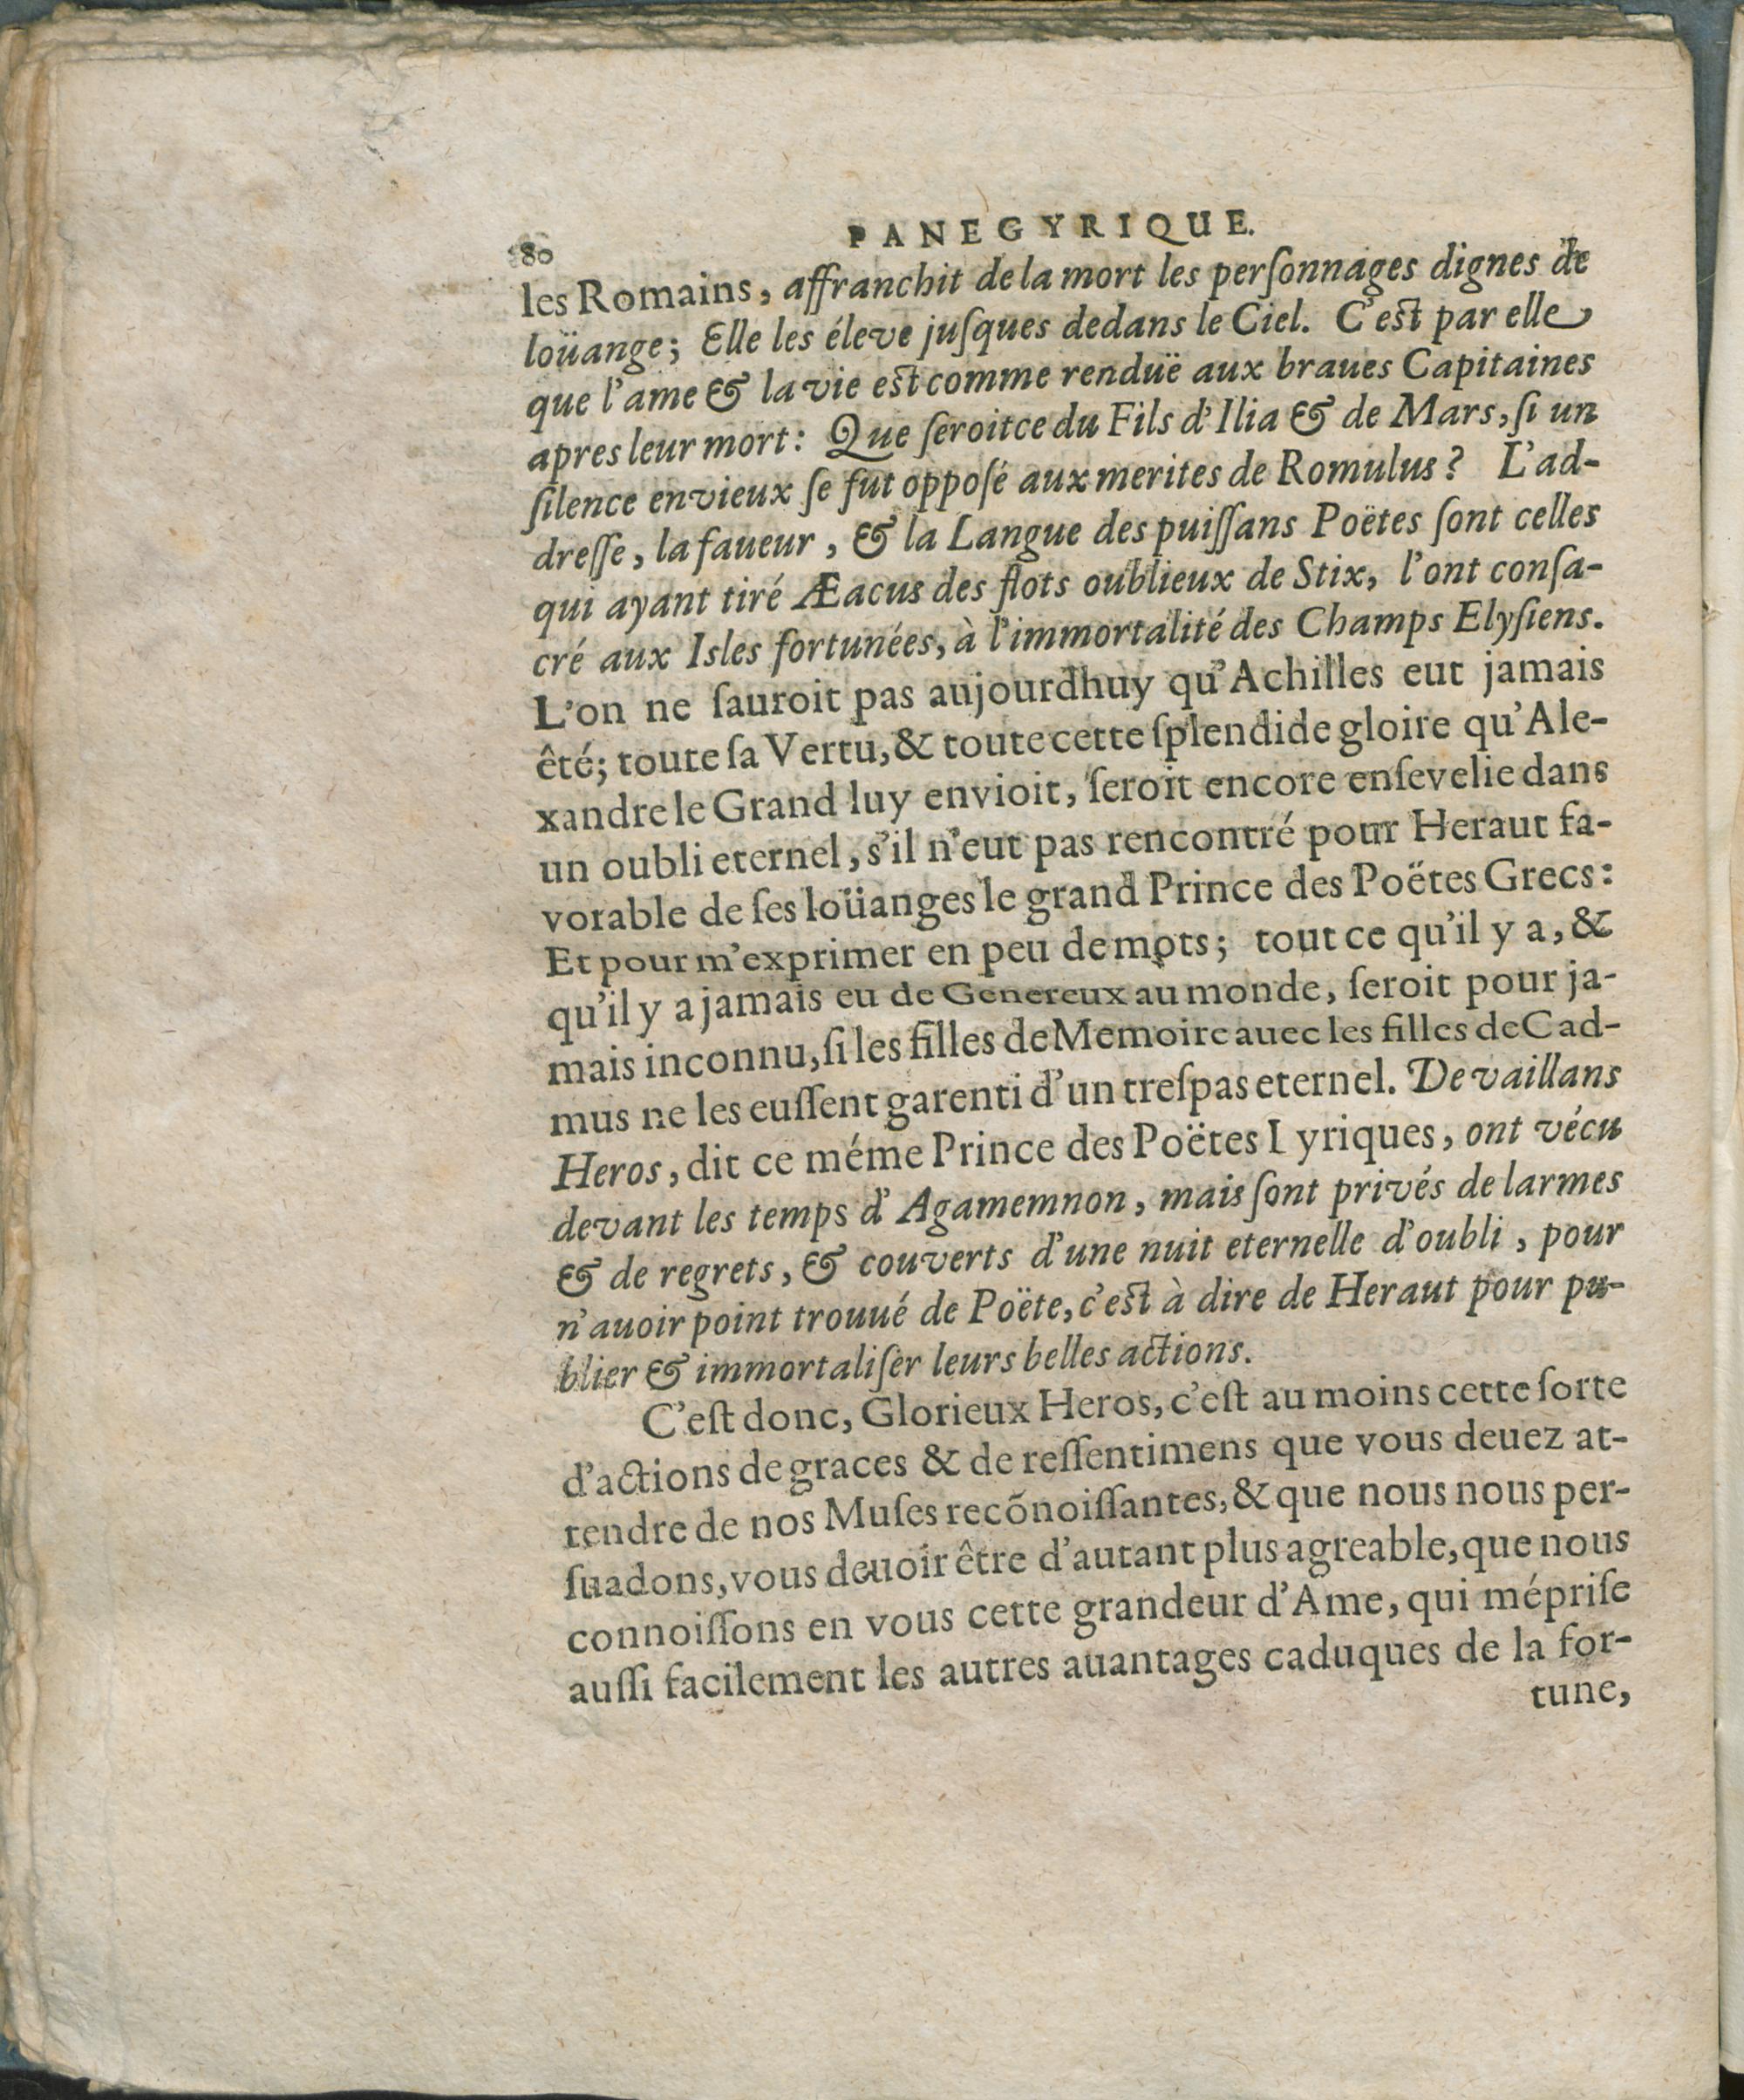 80 PANEGYRIQUE.
les Romains, affranchit de la mort les perſonnages dignes de
loüange; Elle les éleve juſques dedans le Ciel. C'est par elle
que l'ame & la vie est comme renduë aux braues Capitaines
apres leur mort: Que ſeroitce du Fils d'Ilia & de Mars, ſi un
ſilence envieux ſe fut oppoſé aux merites de Romulus? L'ad-
dreſſe, la faueur, & la Langue des puiſſans Poëtes ſont celles
qui ayant tiré Æacus des flots oublieux de Stix, l'ont conſa-
cré aux Isles fortunées, à l'immortalité des Champs Elyſiens.
L'on ne ſauroit pas aujourdhuy qu'Achilles eut jamais
êté; toute ſa Vertu, & toute cette ſplendide gloire qu'Ale-
xandre le Grand luy envioit, ſeroit encore enſevelie dans
un oubli eternel, s'il n'eut pas rencontré pour Heraut fa-
vorable de ſes loüanges le grand Prince des Poëtes Grecs:
Et pour m'exprimer en peu de mots; tout ce qu'il y a, &
qu'il y a jamais eu de Genereux au monde, ſeroit pour ja-
mais inconnu, ſi les filles de Memoire auec les filles de Cad-
mus ne les euſſent garenti d'un treſpas eternel. De vaillans
Heros, dit ce méme Prince des Poëtes Lyriques, ont vécu
devant les temps d'Agamemnon, mais ſont privés de larmes
& de regrets, & couverts d'une nuit eternelle d'oubli, pour
n'auoir point trouué de Poëte, c'est à dire de Heraut pour pu-
blier & immortaliſer leurs belles actions.
C'eſt donc, Glorieux Heros, c'eſt au moins cette ſorte
d'actions de graces & de reſſentimens que vous deuez at-
tendre de nos Muſes recõnoiſſantes, & que nous nous per-
ſuadons, vous deuoir être d'autant plus agreable, que nous
connoiſſons en vous cette grandeur d'Ame, qui mépriſe
auſſi facilement les autres auantages caduques de la for-
tune,